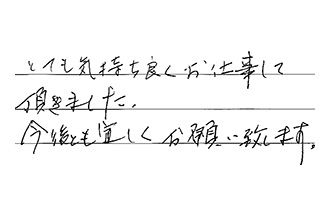 とても気持ち良くお仕事して
頂きました。
今後とも宜しくお願い致します。